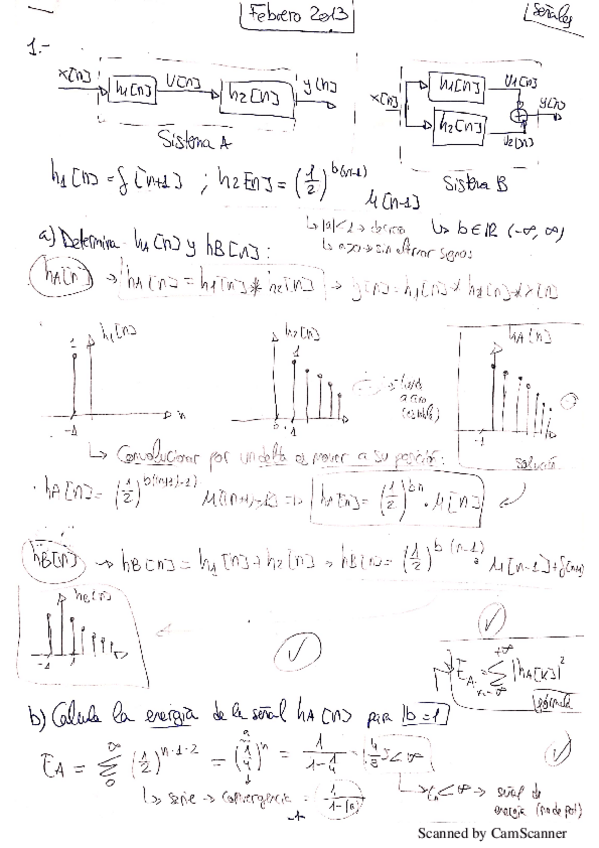 Febrero 2013
Señales
1.-
x[n] h1[n] v[n] h2[n] y[n]
Sistema A
x[n] h1[n] v1[n] h2[n] v2[n] y[n]
Sistema B
h1[n] = δ[n+1] ; h2[n] = (1/2)^b(n-1) μ[n-1]
↳ b∈ℝ (-∞, ∞)
a) Determina hA[n] y hB[n]:
hA[n] → hA[n] = h1[n] * h2[n] →
h1[n]
-1
n
h2[n]
1
0 1
hA[n]
-1
solución
↳ Convolucionar por un delta es mover a su posición:
· hA[n] = (1/2)^b((n+1)-1) μ[(n+1)-1] => hA[n] = (1/2)^bn · μ[n]
hB[n] → hB[n] = h1[n] + h2[n] → hB[n] = (1/2)^b(n-1) · μ[n-1] + δ[n+1]
hB[n]
-1 1
EA = Σ |hA[n]|²
fórmula
b) Calcula la energía de la señal hA[n] para b=1
EA = Σ (1/2)^n·1·2 = (1/4)^n = 1/(1-1/4) = 4/3 < ∞
↳ serie → convergencia = 1/(1-|a|)
→ señal de
energía
-1-
Scanned by CamScanner